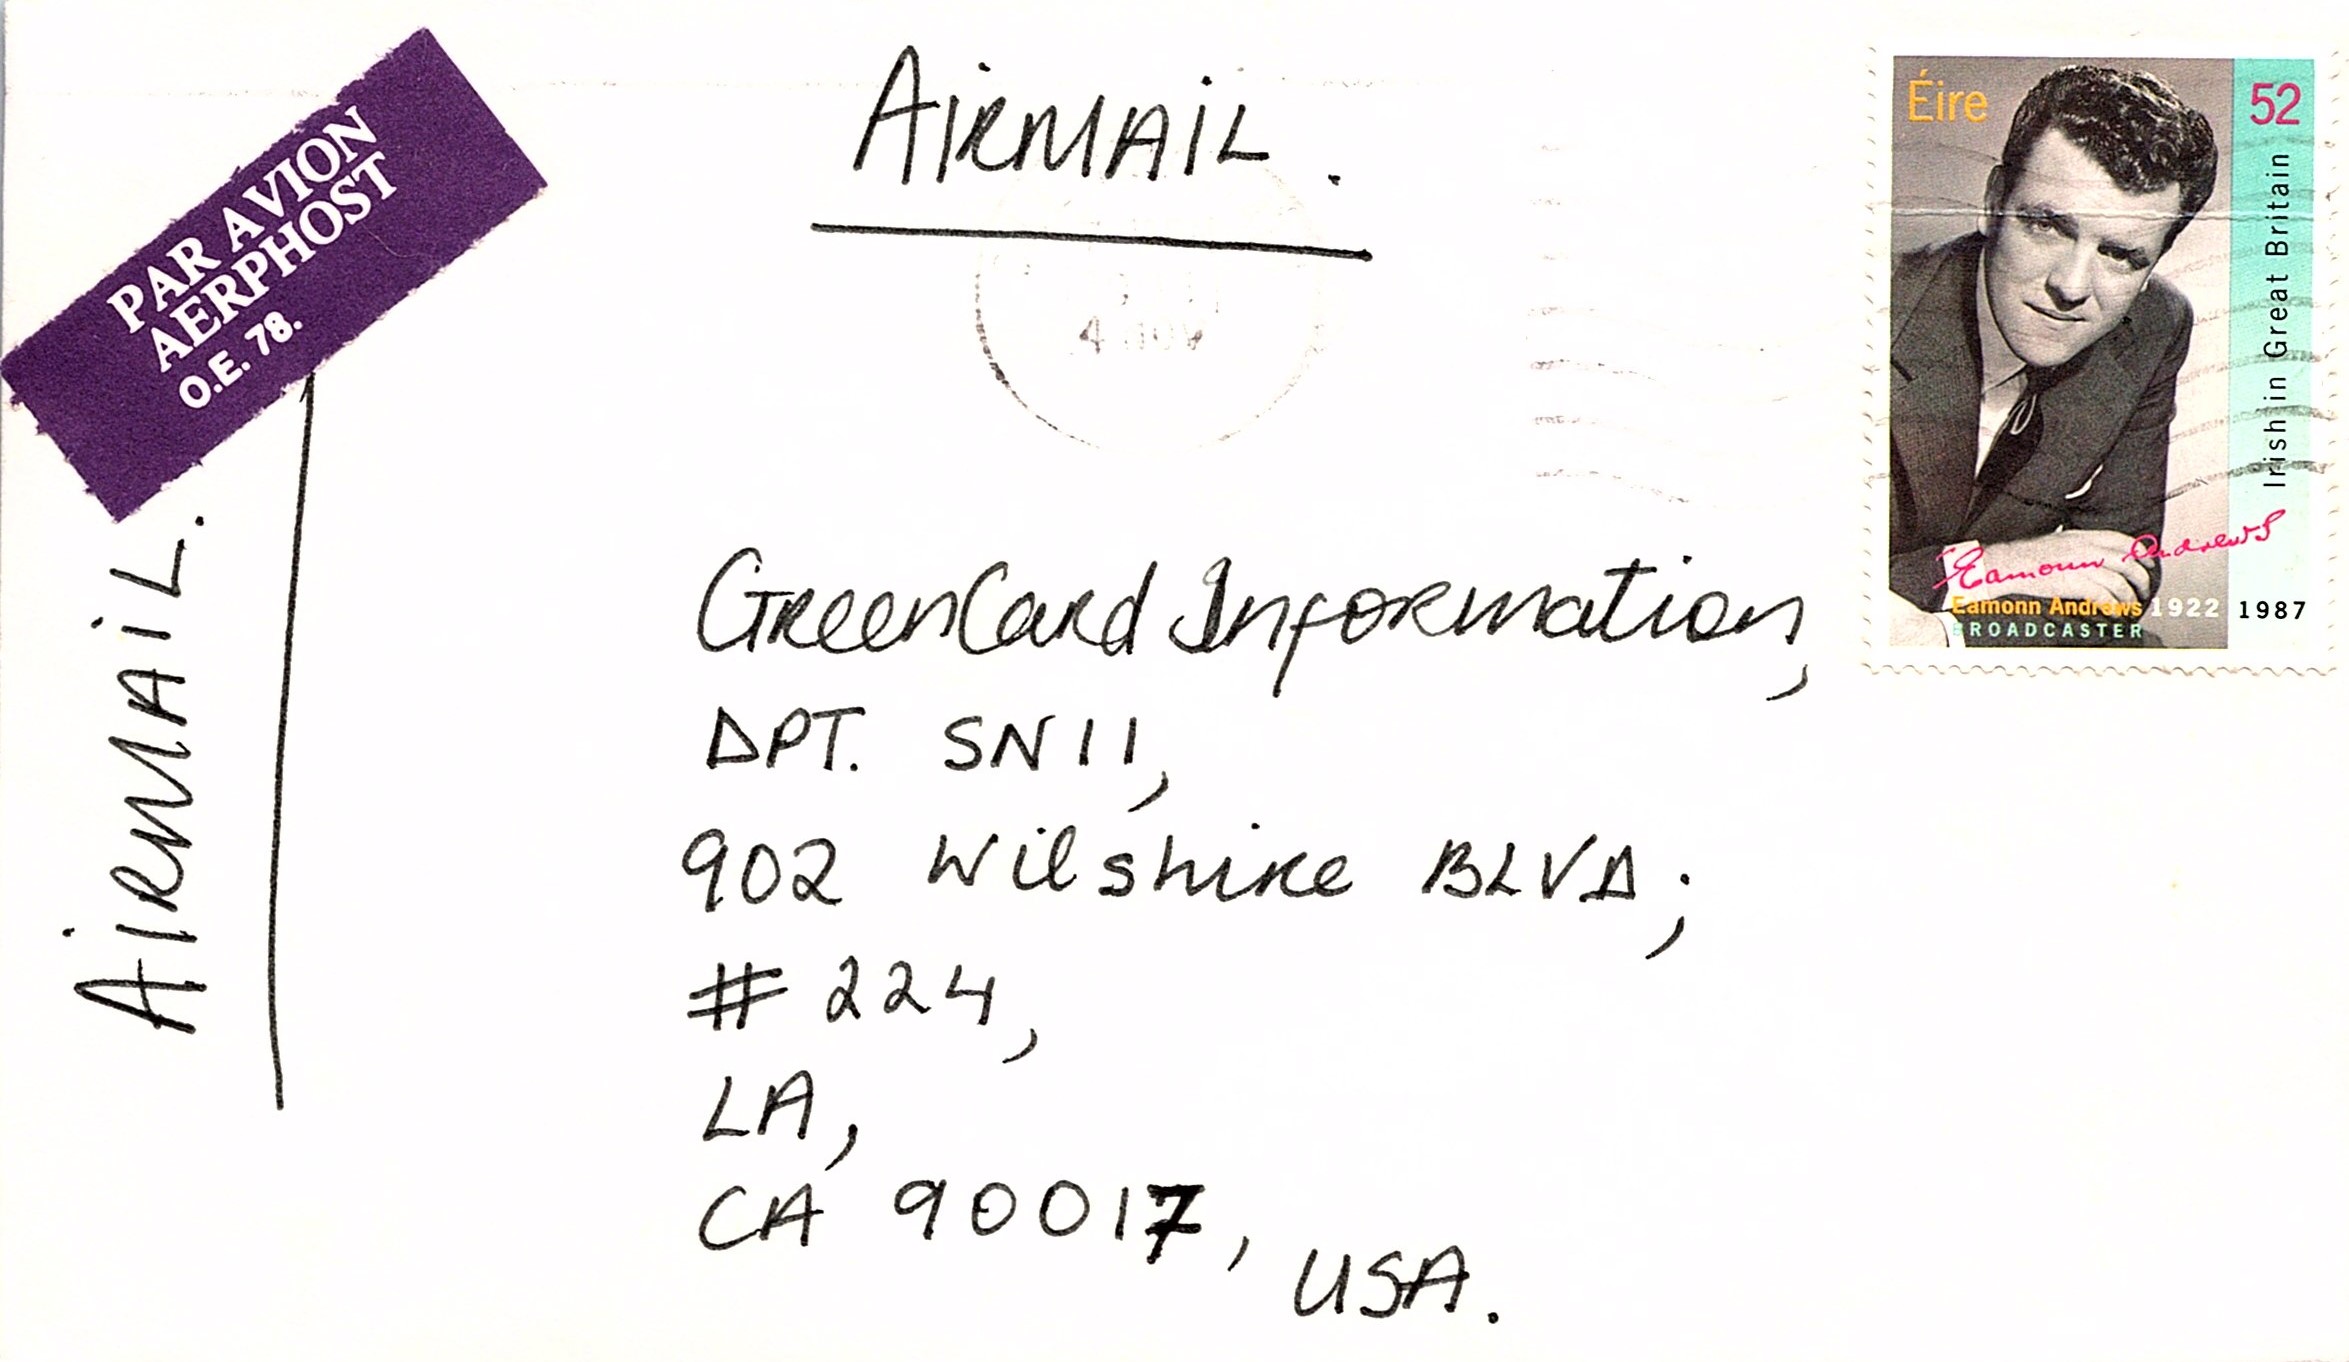 PAR AVION
AERPHOST
O.E. 78.
AIRMAIL.
AIRMAIL.
4 NOV
Éire
52
Irish in Great Britain
Eamonn Andrews
Eamonn Andrews 1922 1987
BROADCASTER
GreenCard Information,
DPT. SN11,
902 Wilshire BLVD;
# 224,
LA,
CA 90017,
USA.